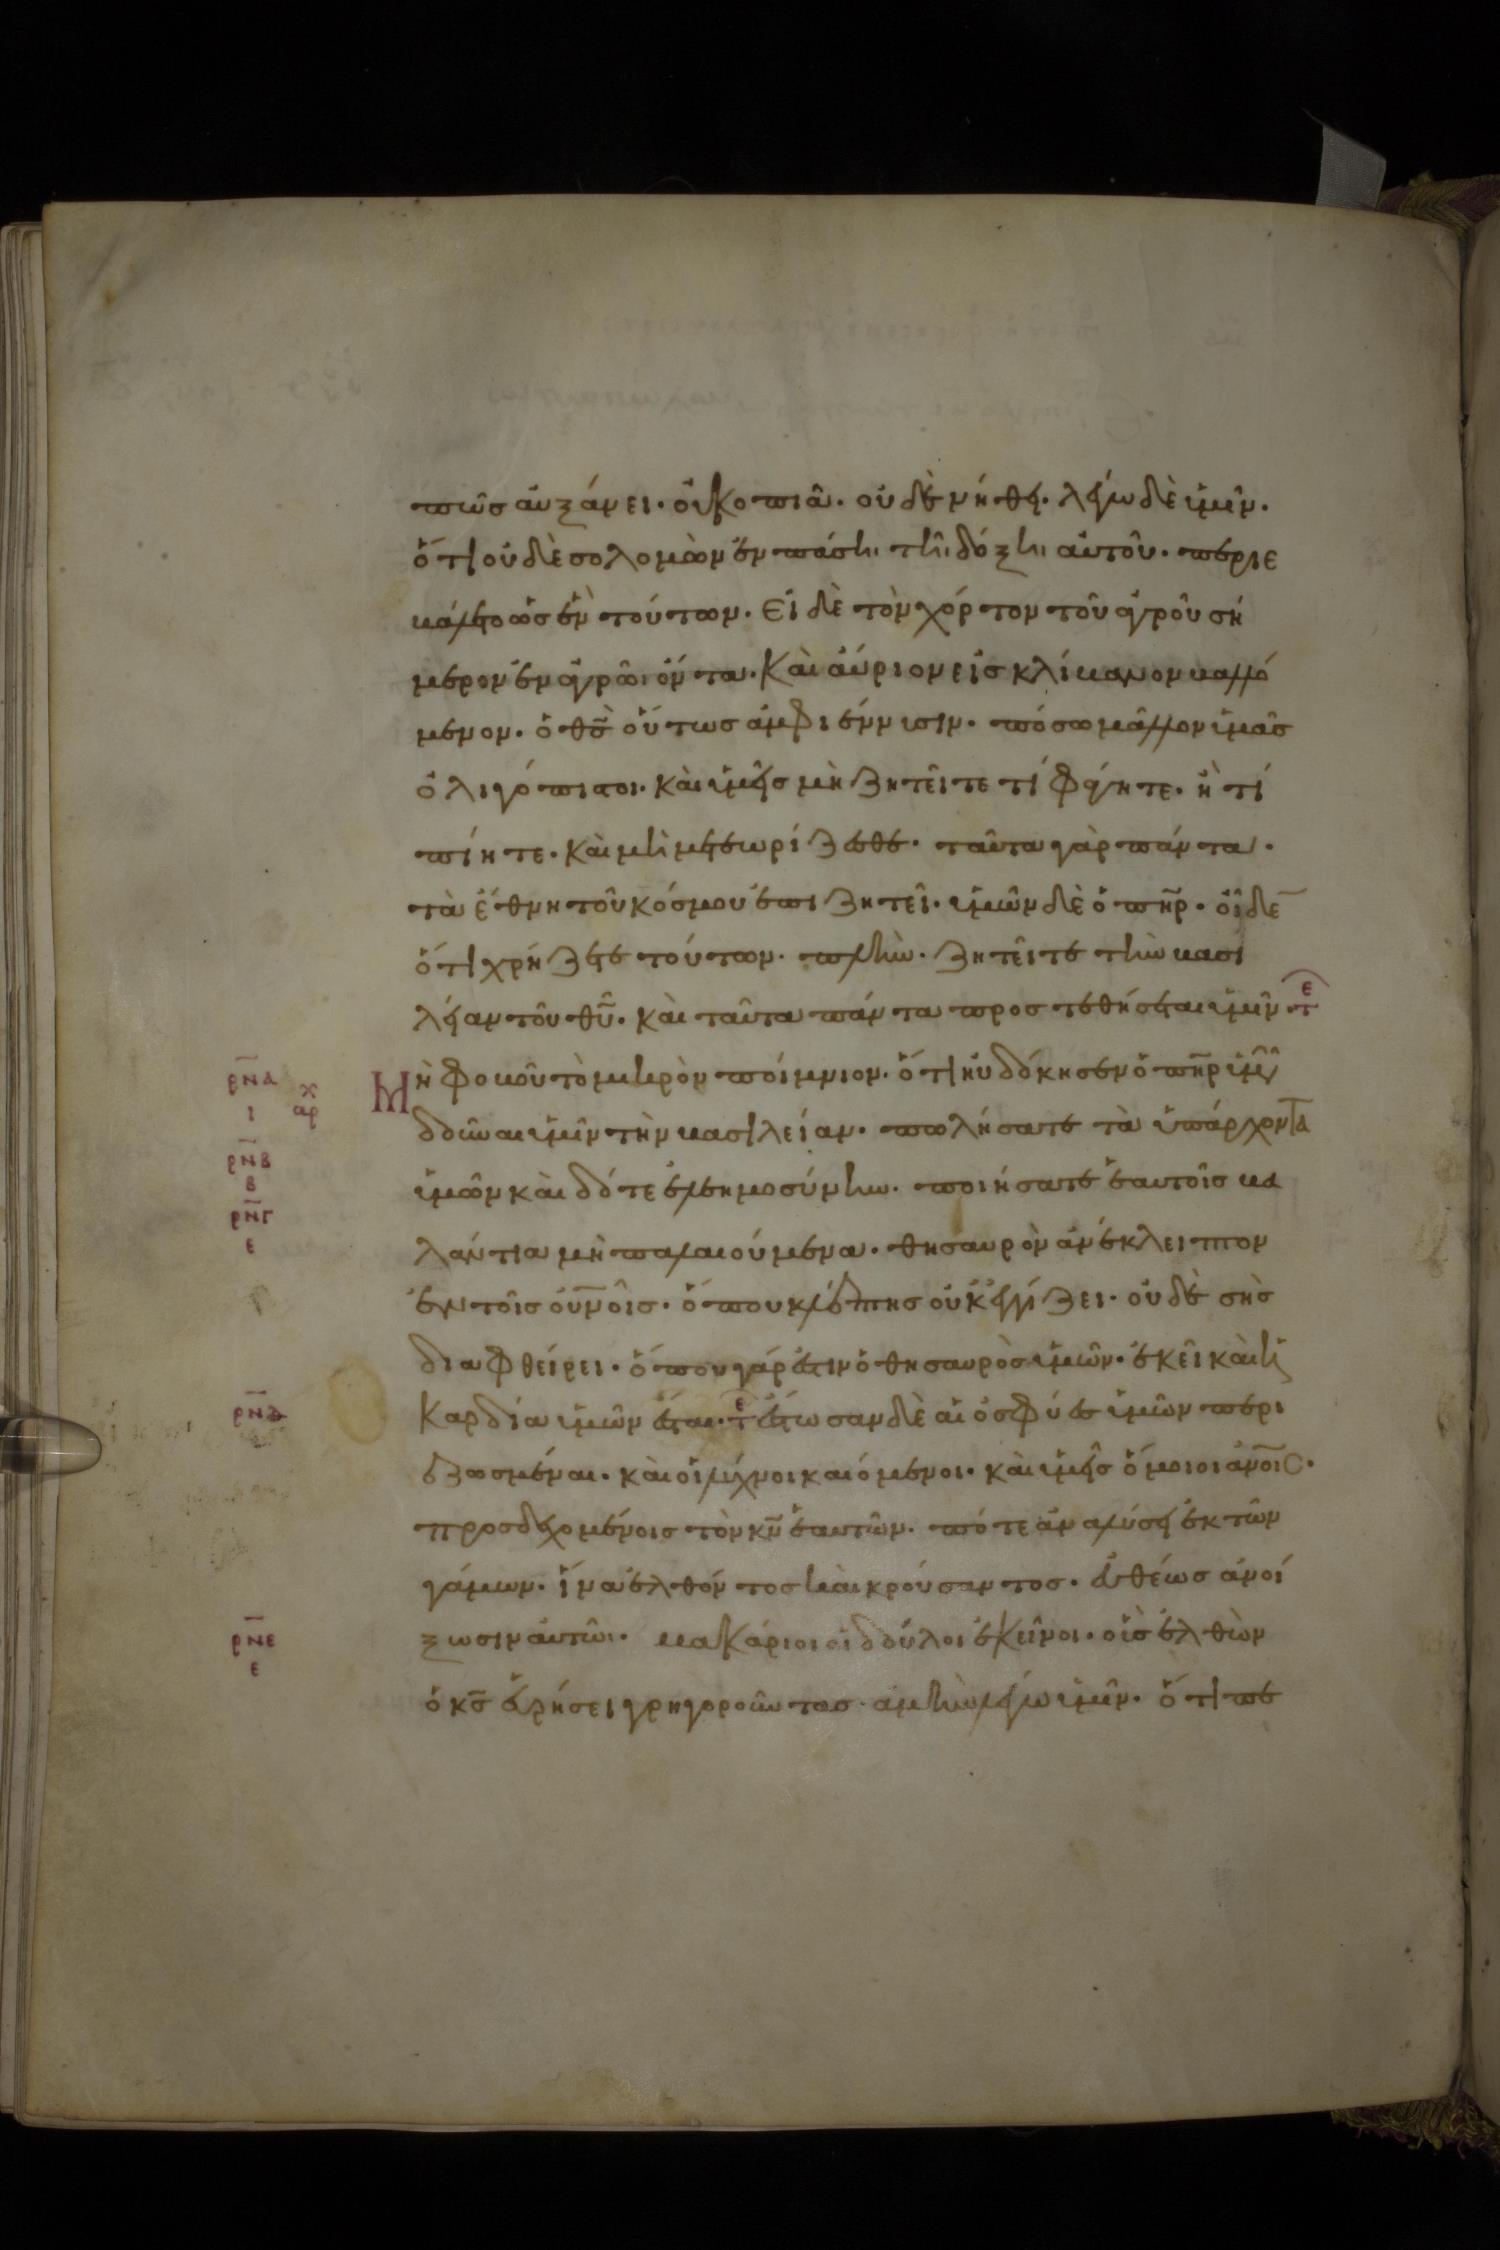 πῶς αὐξάνει· οὐ κοπιᾷ· οὐδὲ νήθει· λέγω δὲ ὑμῖν·
ὅτι οὐδὲ σολομὼν ἐν πάσηι τῆι δόξηι αὐτοῦ· περιε
βάλετο ὡς ἓν τούτων· Εἰ δὲ τὸν χόρτον τοῦ ἀγροῦ σή
μερον ἐν ἀγρῶι ὄντα· Καὶ αὔριον εἰς κλίβανον βαλλό
μενον· ὁ θς̅ οὕτως ἀμφιέννισιν· πόσω μᾶλλον ὑμᾶς
ὀλιγόπιστοι· Καὶ ὑμεῖς μὴ ζητεῖτε τί φάγητε· ἢ τί
πίητε· Καὶ μὴ μετεωρίζεσθε· ταῦτα γὰρ πάντα·
τὰ ἔθνη τοῦ κόσμου ἐπιζητεῖ· ὑμῶν δὲ ὁ πηρ̅· οἶδε̅
ὅτι χρήζετε τούτων· πλὴν· ζητεῖτε τὴν βασι
λείαν τοῦ θυ̅· καὶ ταῦτα πάντα προστεθήσεται ὑμῖν· τε
ρνα Μὴ φοβοῦ τὸ μικρὸν ποίμνιον· ὅτι ηὐδόκησεν ὁ πηρ̅ ὑμῶ
ι χ αρ
δοῦναι ὑμῖν τὴν βασιλείαν· πωλήσατε τὰ ὑπάρχοντα
ρνβ
β
ὑμῶν καὶ δότε ἐλεημοσύνην· ποιήσατε ἑαυτοῖς βα
ρνγ
ε
λάντια μὴ παλαιούμενα· θησαυρὸν ἀνέκλειπτον
ἐν τοῖς οὐνοῖς· ὅπου κλέπτης οὐκ ἐγγίζει· οὐδὲ σὴς
διαφθείρει· ὅπου γάρ ἐστιν ὁ θησαυρὸς ὑμῶν· ἐκεῖ καὶ ἡ
ρνδ Καρδία ὑμῶν ἔσται· τε ἔστωσαν δὲ αἱ ὀσφύες ὑμῶν περι
εζωσμέναι· καὶ οἱ λύχνοι καιόμενοι· καὶ ὑμεῖς ὅμοιοι ἀνοις·
προσδεχομένοις τὸν κν̅ ἑαυτῶν· πότε ἀναλύσει ἐκ τῶν
γάμων· ἵνα ἐλθόντος καὶ κρούσαντος· εὐθέως ἀνοί
ρνε
ε
ξωσιν αὐτῶι· μακάριοι οἱ δοῦλοι ἐκεῖνοι· οἷς ἐλθὼν
ὁ κς̅ εὑρήσει γρηγοροῦντας· ἀμὴν λέγω ὑμῖν· ὅτι πε